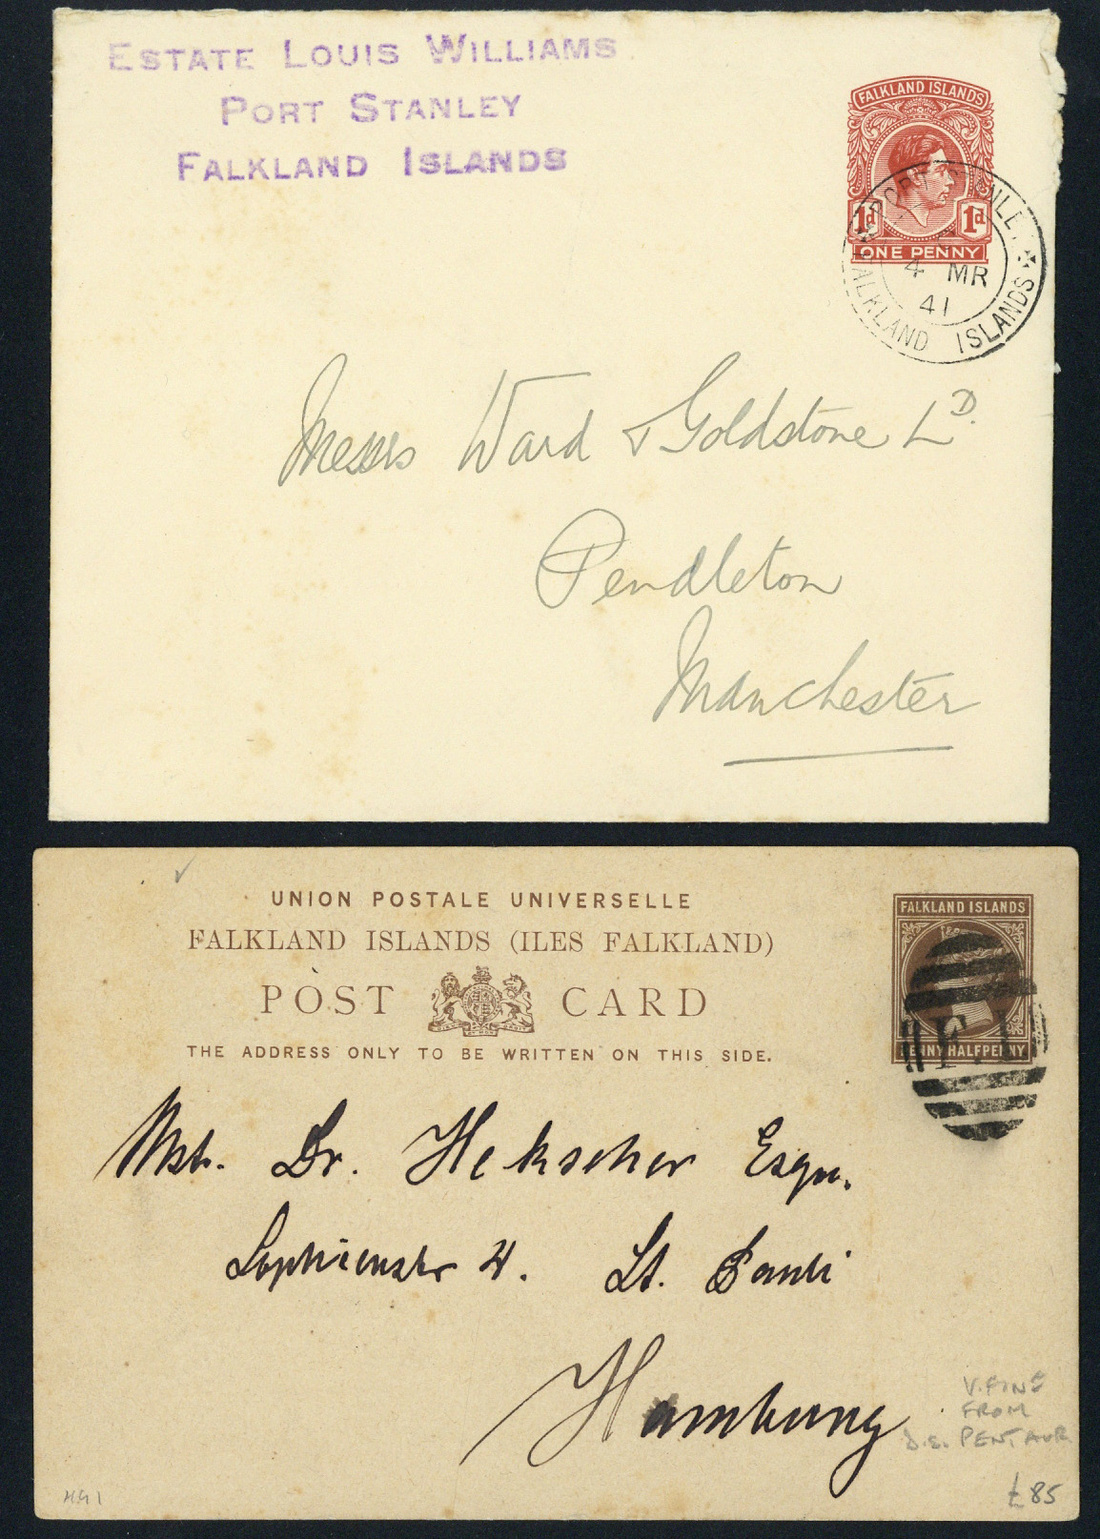 ESTATE LOUIS WILLIAMS
PORT STANLEY
FALKLAND ISLANDS
FALKLAND ISLANDS
1d 1d
ONE PENNY
PORT STANLEY
4 MR
41
FALKLAND ISLANDS
Messrs Ward & Goldstone LD.
Pendleton
Manchester
UNION POSTALE UNIVERSELLE
FALKLAND ISLANDS (ILES FALKLAND)
POST CARD
THE ADDRESS ONLY TO BE WRITTEN ON THIS SIDE.
FALKLAND ISLANDS
PENNY HALFPENNY
F.I.
Dr. Hekscher Esqu.
Sophienstr 4. St. Pauli
Hamburg
V. FINE
FROM
D.S. PENTAUR
£85
H&G 1